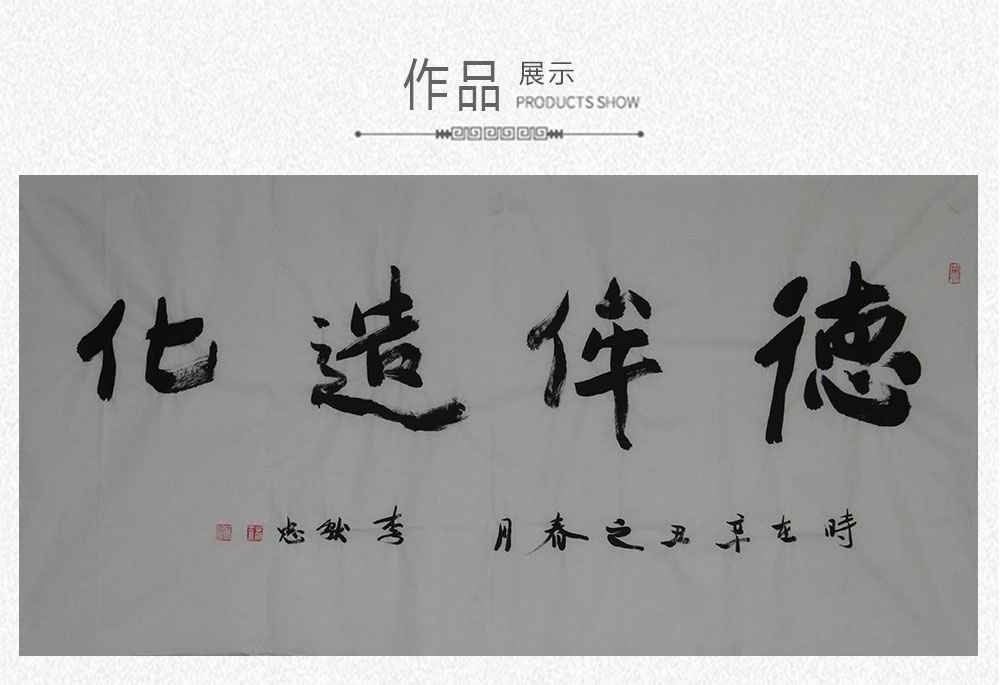 作品 展示
PRODUCTS SHOW
德侔造化
時在辛丑之春月 李猷忠